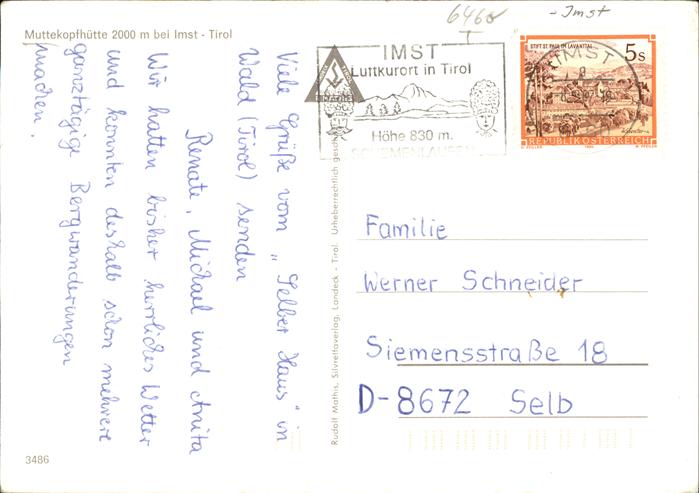 Muttekopfhütte 2000 m bei Imst - Tirol
6460
I
- Imst
IMST
Luftkurort in Tirol
Höhe 830 m.
SCHEMENLAUFEN
STIFT ST. PAUL IM LAVANTTAL
5s
IMST
REPUBLIK ÖSTERREICH
Viele Grüße vom „Selber Haus" in
Wald (Tirol) senden
Renate, Michael und Anita
Wir hatten bisher herrliches Wetter
und konnten deshalb schon mehrere
ganztägige Bergwanderungen
machen.
Rudolf Mathis, Silvrettaverlag, Landeck - Tirol. Urheberrechtlich gesch
Familie
Werner Schneider
Siemensstraße 18
D-8672 Selb
3486